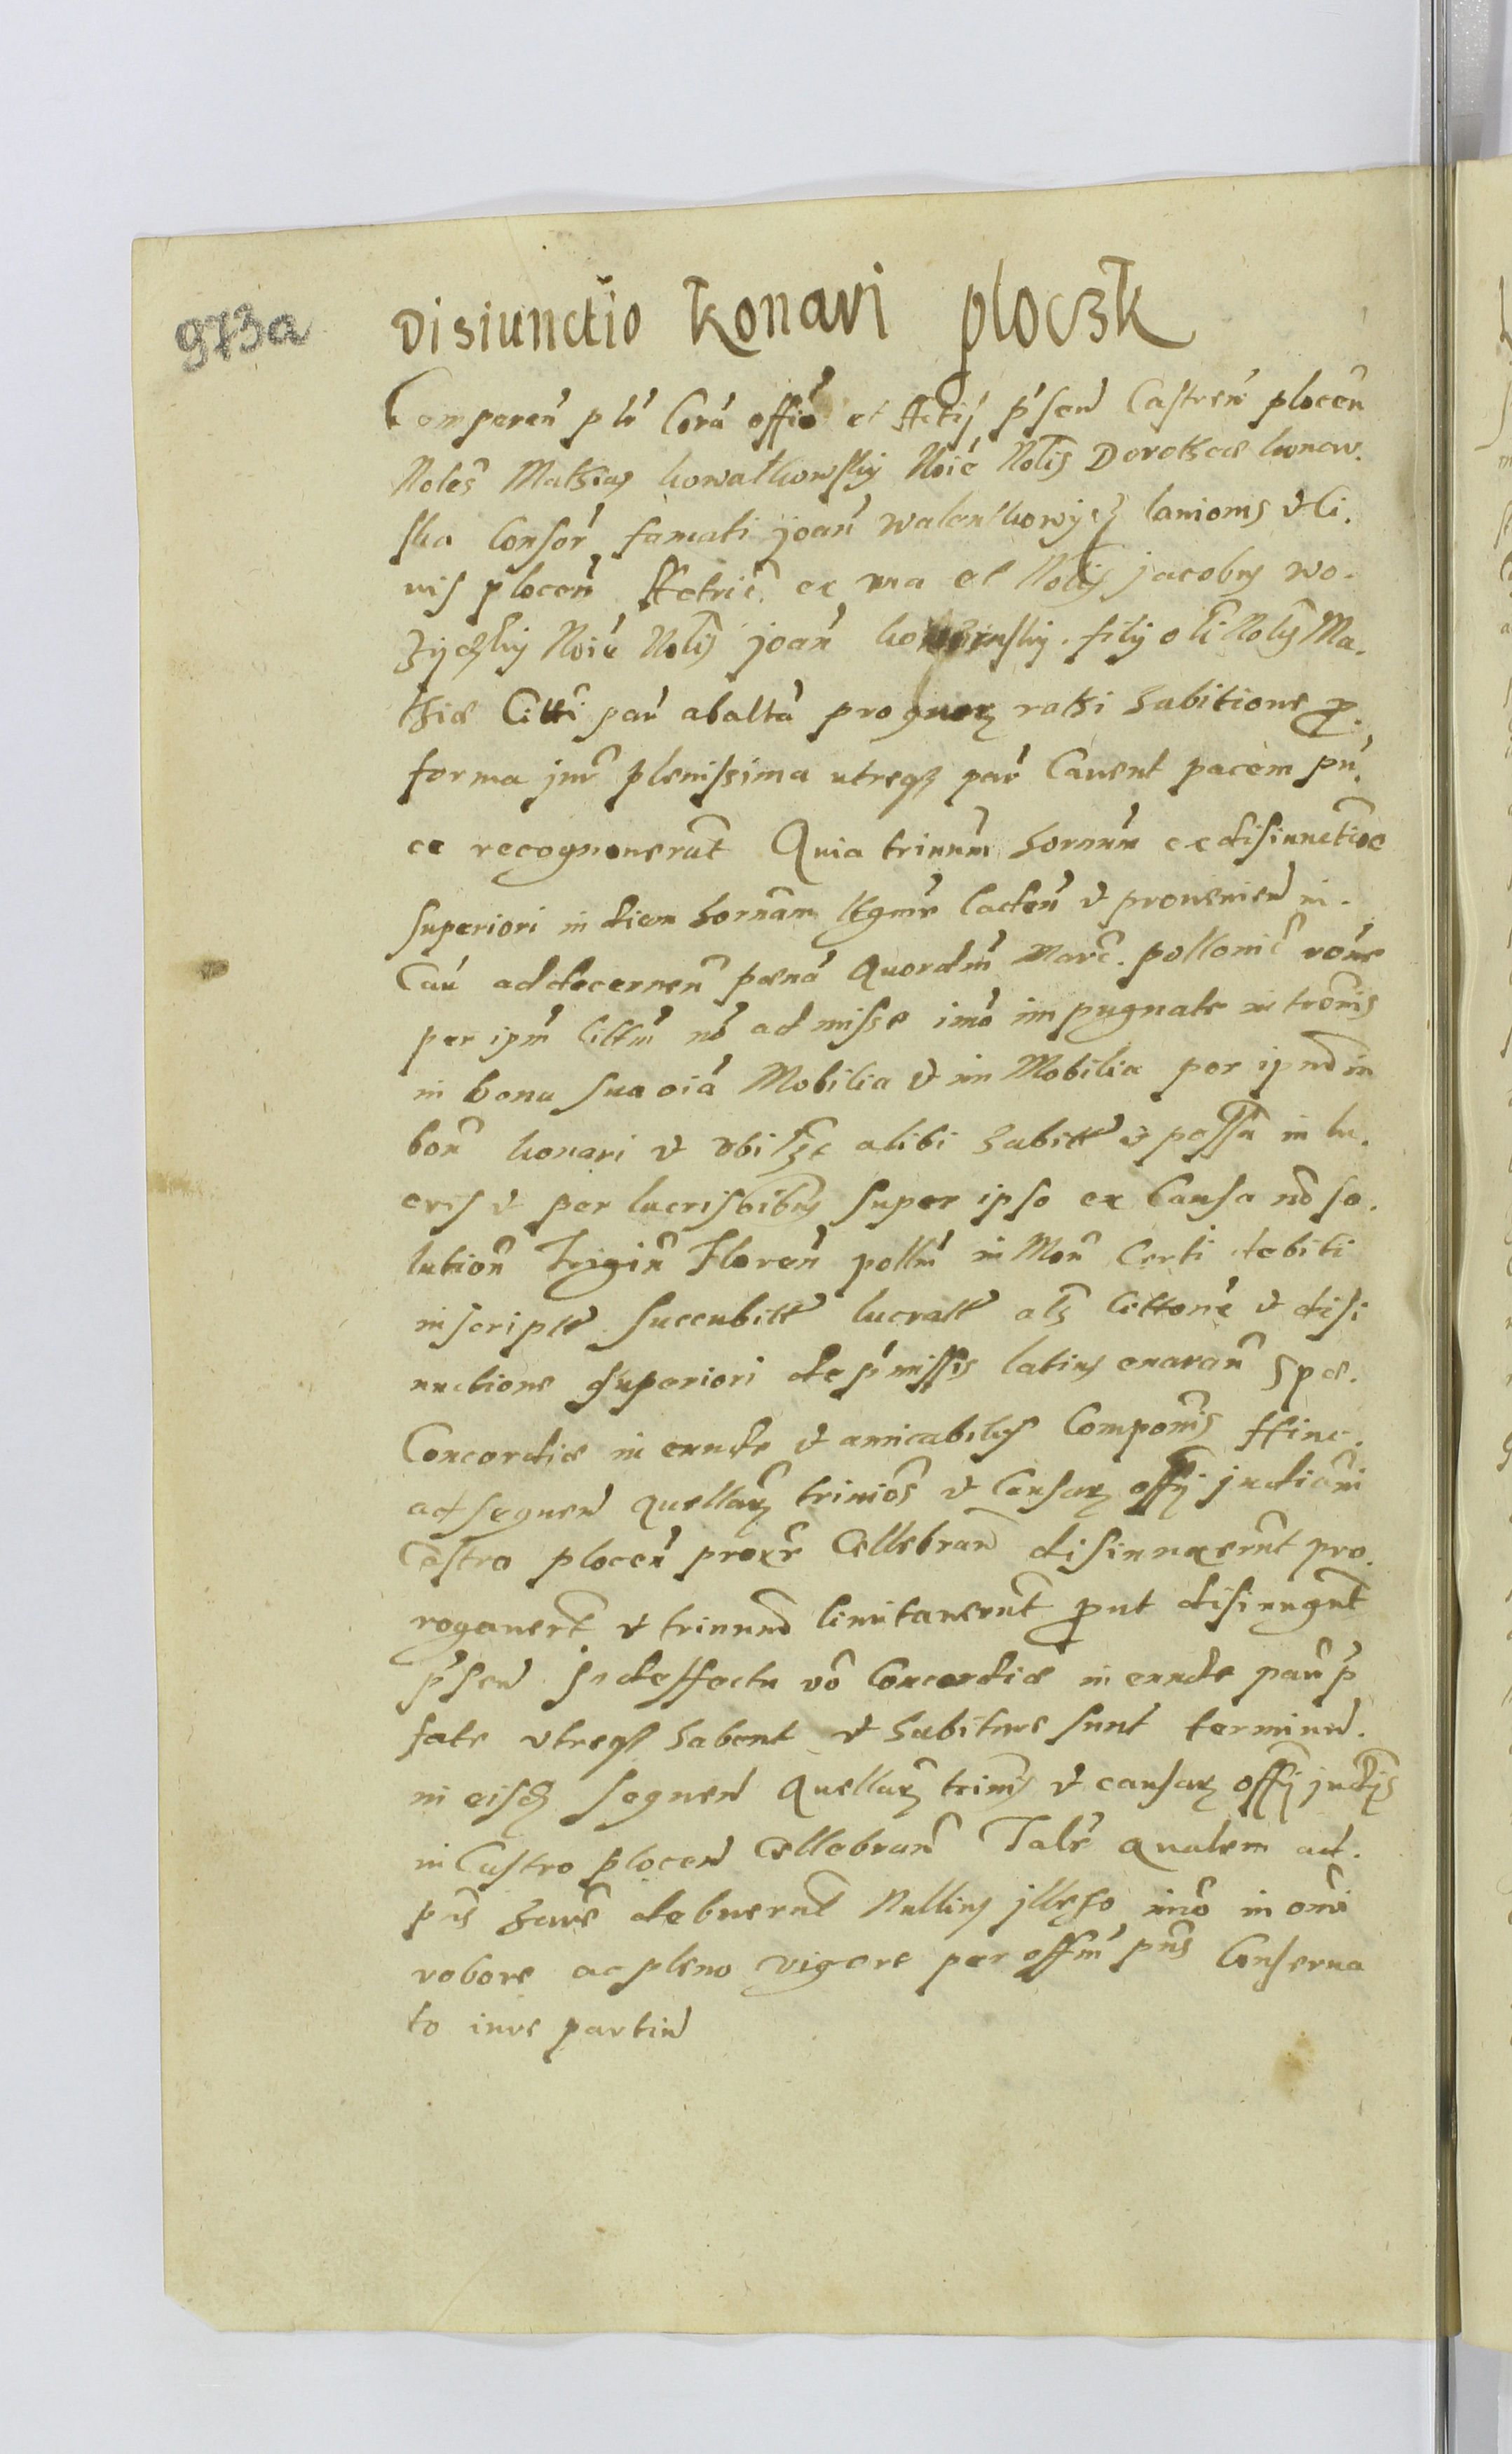 973a
Disiunctio Konari ploczk
Comparen plr Corā offio et Actis pnsen Castren plocen
Nobs Mathias kowalkowsky Noie Nobis Dorothae konar.
ska Consor famati joan walentkowycz lanionis et Ci.
uis plocen Actricis ex vna et Nobis jacobus wo.
zyczky Noie Nobis joan filij olī Nobis Ma.
thiæ Citti par ab altā pro quorz rathi habitione pro
forma jur plenissima utreqz par Cauent pacem pu.
ce recognouerūt Quia trinum hornum ex disiunctioe
superiori in diem hornam caden et prouenien in.
Cau ad decernen pœnā Quordm Marc. pollonic rōne
per ipm Cittm nō admisse imō impugnate intromis
in bona sua oiā Mobilia et im Mobilia per ipm in
bon konari et vbilz alibi habitt et possa in lu.
cris et perlucris oibus super ipso ex Causa nō so.
lution Trigin Floren pollm in Mon Certi debiti
inscripte succubitt lucratt als Cittone et disi
unctione superiori de pmissis latius enaran Spæ.
Concordiæ in eunde et amicabilis Componis hinc
ad sequen Quellarz trimos et Causarz offij judiciari
Castro plocen prox Cellebran disiunxerunt pro.
rogauert et trinum limitauerunt prout disiungut
pnsen In deffectu vō Concordiæ in eunde par p
fate vtreqz habent et habiture sunt terminum.
in eisdz sequen Quellarz trimis et causarz offij judijs
in Castro plocen Cellebran Talē qualem ad.
pns hare debuerunt Nullius jlleso imō in omi
robore ac pleno vigore per offm pns Conserua
to iure partiu